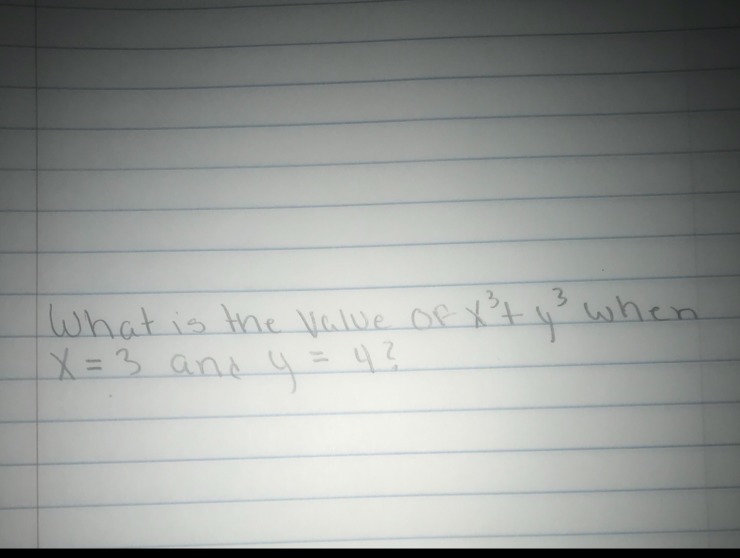 What is the value of x³+ y³ when
x = 3 and y = 4?